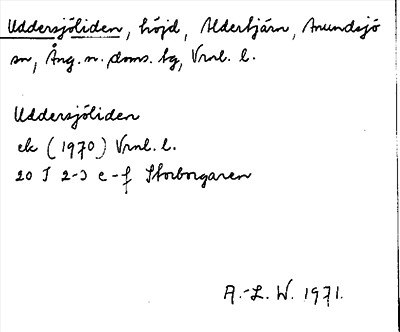 Uddersjöliden, höjd, Alderbjärn, Anundsjö
sn, Ång. n. doms. tg, Vrnl. l.
Uddersjöliden
ek (1970) Vrnl. l.
20 J 2-3 e-f Storborgaren
A.-L. W. 1971.